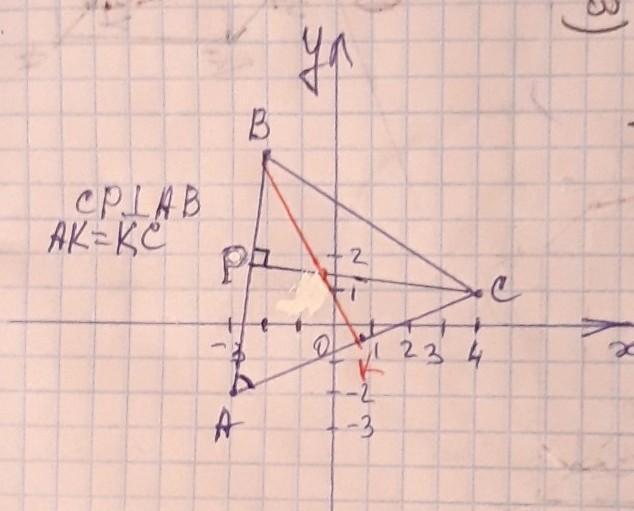 3)
y
B
CP⊥AB
AK=KC
P
2
1
C
-3
0
1
2
3
4
x
K
-2
A
-3